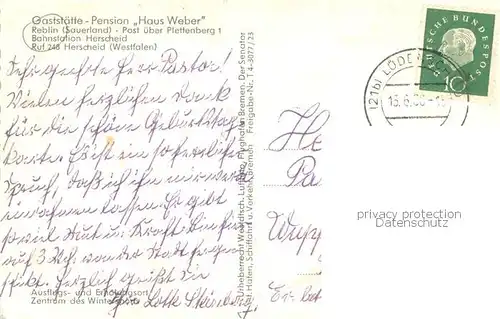 Gaststätte - Pension „Haus Weber"
Reblin (Sauerland) - Post über Plettenberg 1
Bahnstation Herscheid
Ruf 248 Herscheid (Westfalen)
Sehr geehrter Herr Pastor!
Vielen herzlichen Dank
für die schöne Geburtstags
karte. Es ist ein so herrlicher
Spruch, daß ich ihn mir werde
einrahmen lassen. Er gibt
so viel Mut u. Kraft. Bin hier
auf 3 Wch. von der Stadt
Herzlich grüßt Sie
Ihre Lotte
Ausflugs- und Erholungsort
Zentrum des Wintersports
Urheberrecht Luftfoto, Flughafen Bremen. Der Senator
f. Häfen, Schiffahrt u. Verkehr, Bremen Freigabe-Nr. 1 4-3077/23
DEUTSCHE BUNDESPOST
10
(21b) LÜDENSCHEID
He
Pa
Wupp
privacy protection
Datenschutz